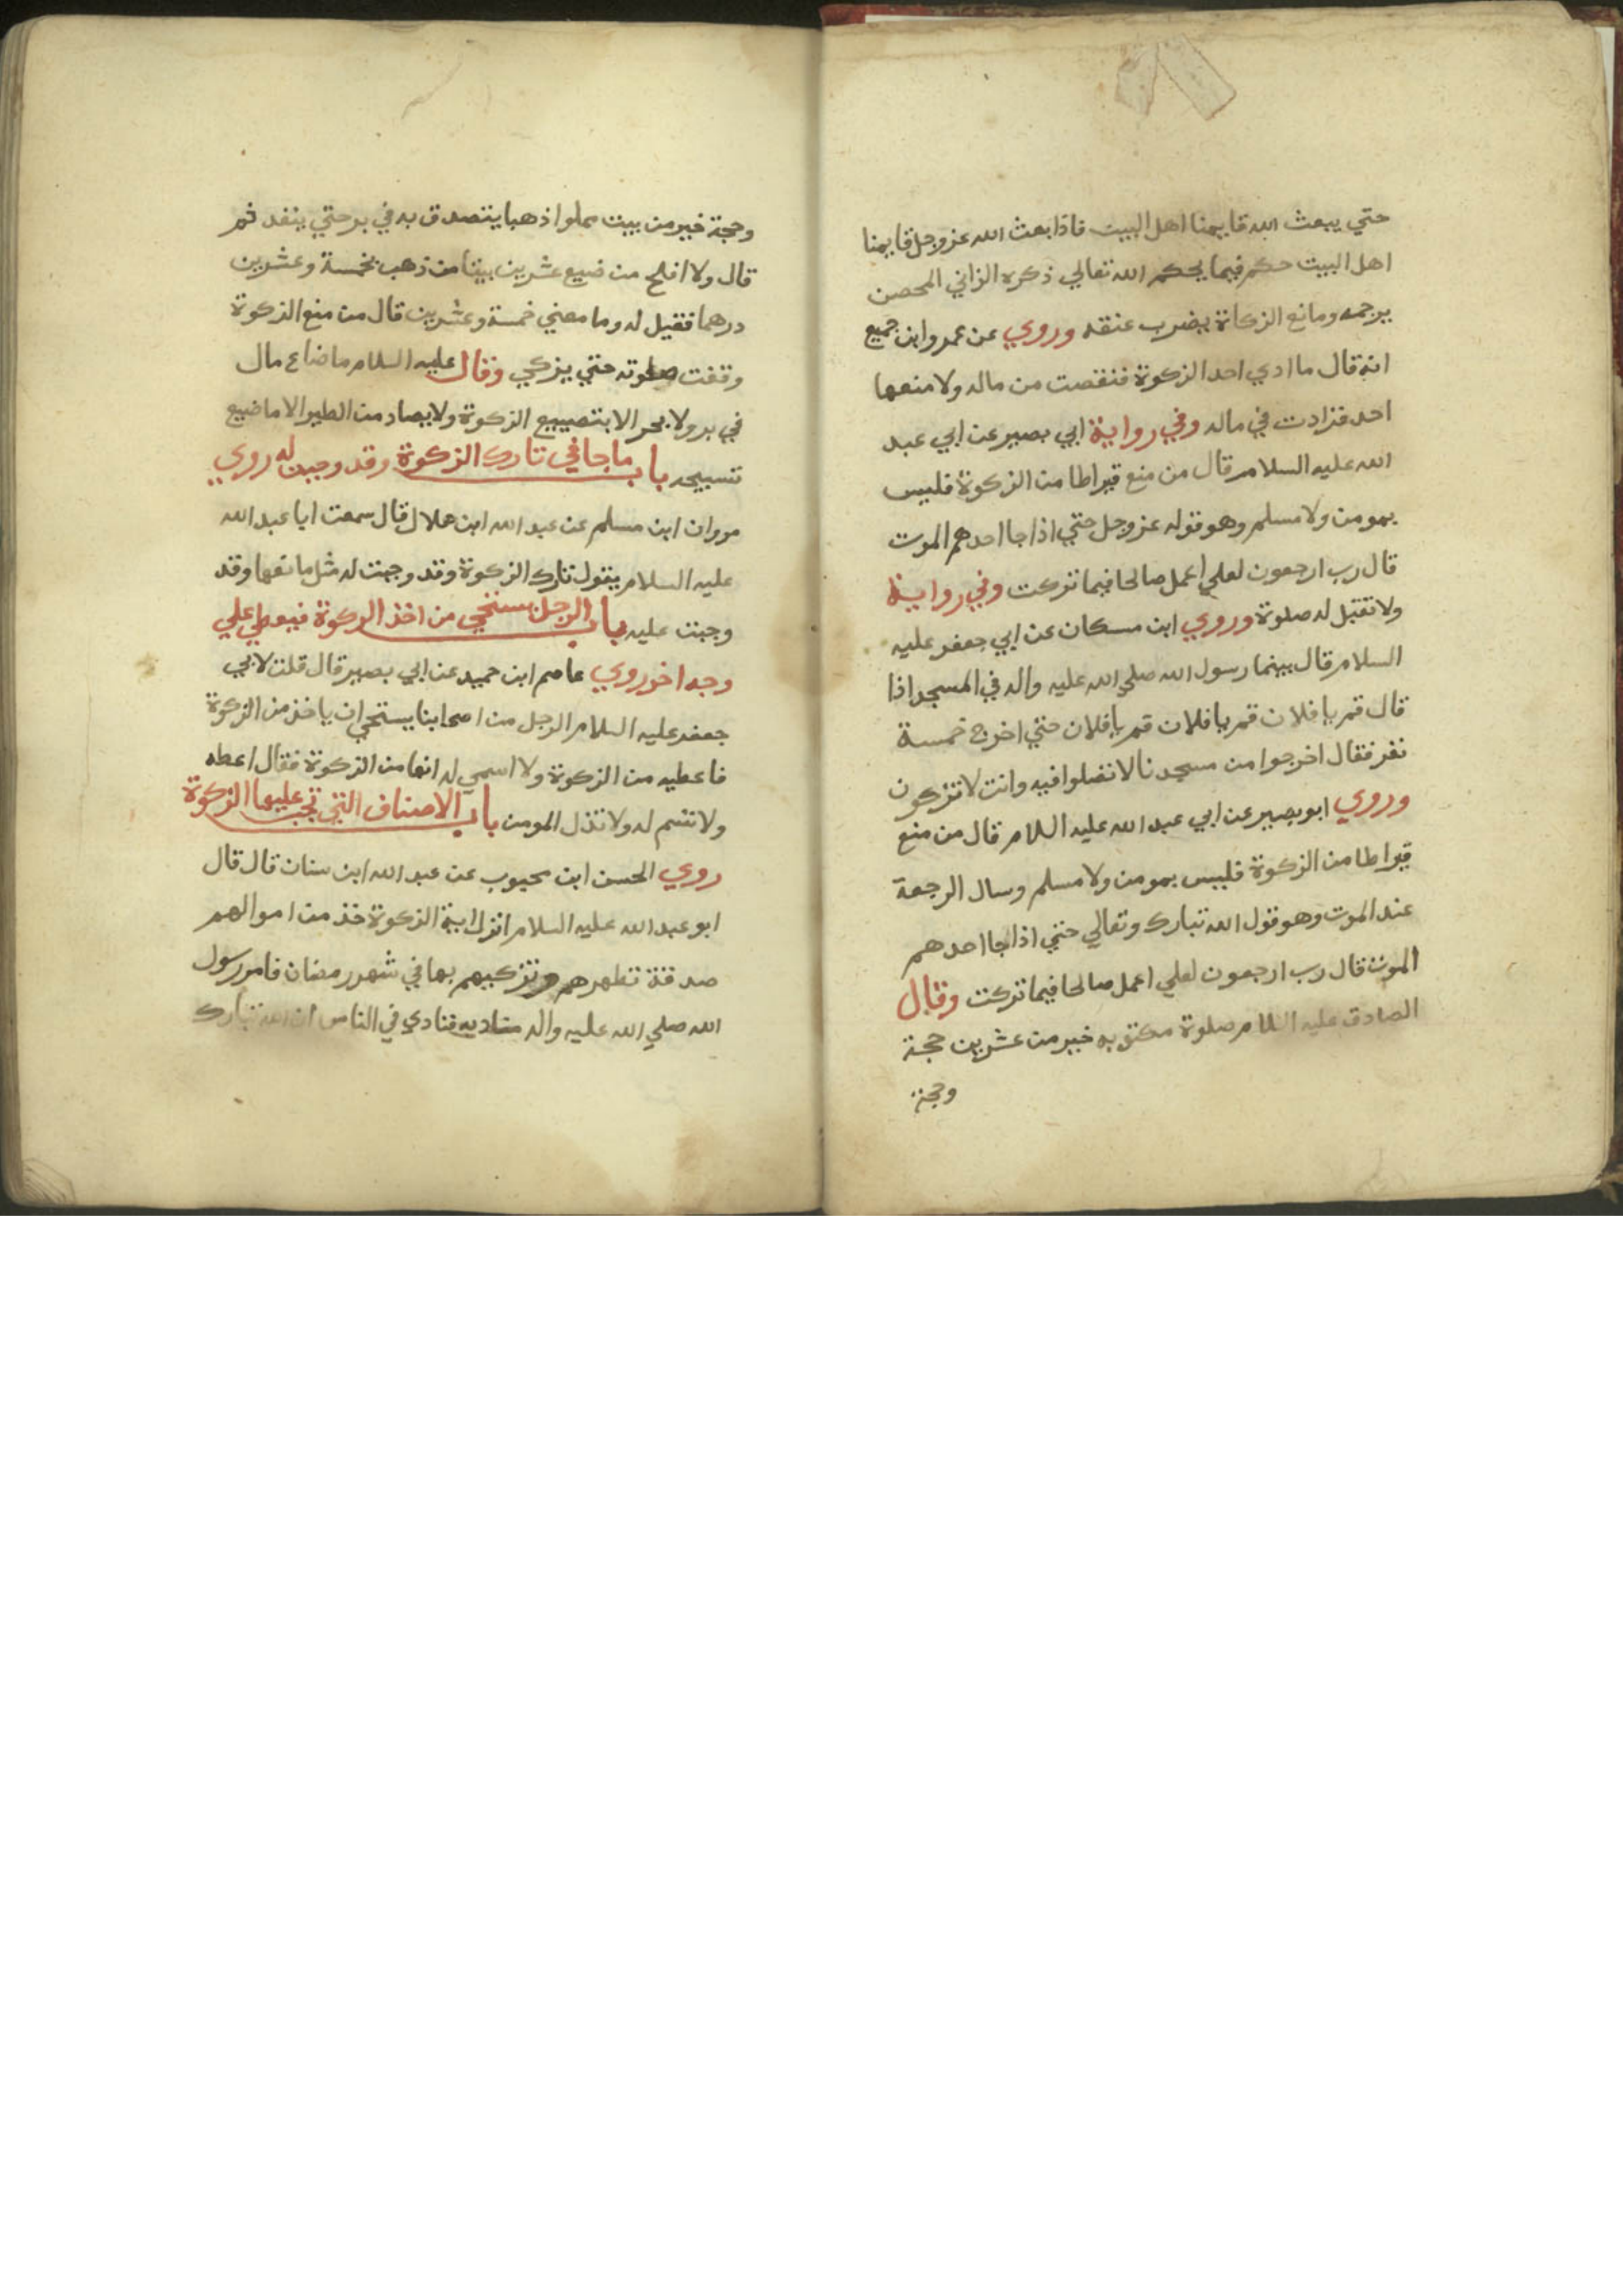 حتي يبعث الله قايمنا اهل البيت فاذا بعث الله عزوجل قايمنا
اهل البيت حكم فيما يحكم الله تعالي ذكره الزاني المحصن
يرجمه ومانع الزكاة يضرب عنقه وروي عن عمرو ابن جميع
انه قال ما ادي احد الزكوة فنقصت من ماله ولا منعها
احد فزادت في ماله وفي رواية ابي بصير عن ابي عبد
الله عليه السلام قال من منع قيراطا من الزكوة فليس
بمومن ولا مسلم وهو قوله عزوجل حتي اذا جا احدهم الموت
قال رب ارجعون لعلي اعمل صالحا فيما تركت وفي رواية
ولا تقبل له صلوة وروي ابن مسكان عن ابي جعفر عليه
السلام قال بينما رسول الله صلي الله عليه واله في المسجد اذا
قال قم يا فلان قم يا فلان قم يا فلان حتي اخرج خمسة
نفر فقال اخرجوا من مسجدنا لا تصلوا فيه وانت لا تزكون
وروي ابو بصير عن ابي عبد الله عليه السلام قال من منع
قيراطا من الزكوة فليس بمومن ولا مسلم وسال الرجعة
عند الموت وهو قول الله تبارك وتعالي حتي اذا جا احدهم
الموت قال رب ارجعون لعلي اعمل صالحا فيما تركت وقال
الصادق عليه السلام صلوة مكتوبه خير من عشرين حجة
وحجة
وحجة خير من بيت مملوا ذهبا يتصدق به في بر حتي ينفد ثم
قال ولا افلح من ضيع عشرين بيتا من ذهب بخمسة وعشرين
درهما فقيل له وما معني خمسة وعشرين قال من منع الزكوة
وقفت صلوته حتي يزكي وقال عليه السلام ما ضاع مال
في بر ولا بحر الا بتضييع الزكوة ولا يصاد من الطير الا ما ضيع
تسبيحه باب ما جا في تارك الزكوة وقد وجبت له روي
مروان ابن مسلم عن عبد الله ابن هلال قال سمعت ابا عبد الله
عليه السلام يقول تارك الزكوة وقد وجبت له مثل مانعها وقد
وجبت عليه باب الرجل يستحي من اخذ الزكوة فيعطي علي
وجه اخر روي عاصم ابن حميد عن ابي بصير قال قلت لابي
جعفر عليه السلام الرجل من اصحابنا يستحي ان ياخذ من الزكوة
فاعطيه من الزكوة ولا اسمي له انها من الزكوة فقال اعطه
ولا تسم له ولا تذل المومن باب الاصناف التي تجب عليها الزكوة
روي الحسن ابن محبوب عن عبد الله ابن سنان قال قال
ابو عبد الله عليه السلام انزل اية الزكوة خذ من اموالهم
صدقة تطهرهم وتزكيهم بها في شهر رمضان فامر رسول
الله صلي الله عليه واله مناديه فنادي في الناس ان الله تبارك